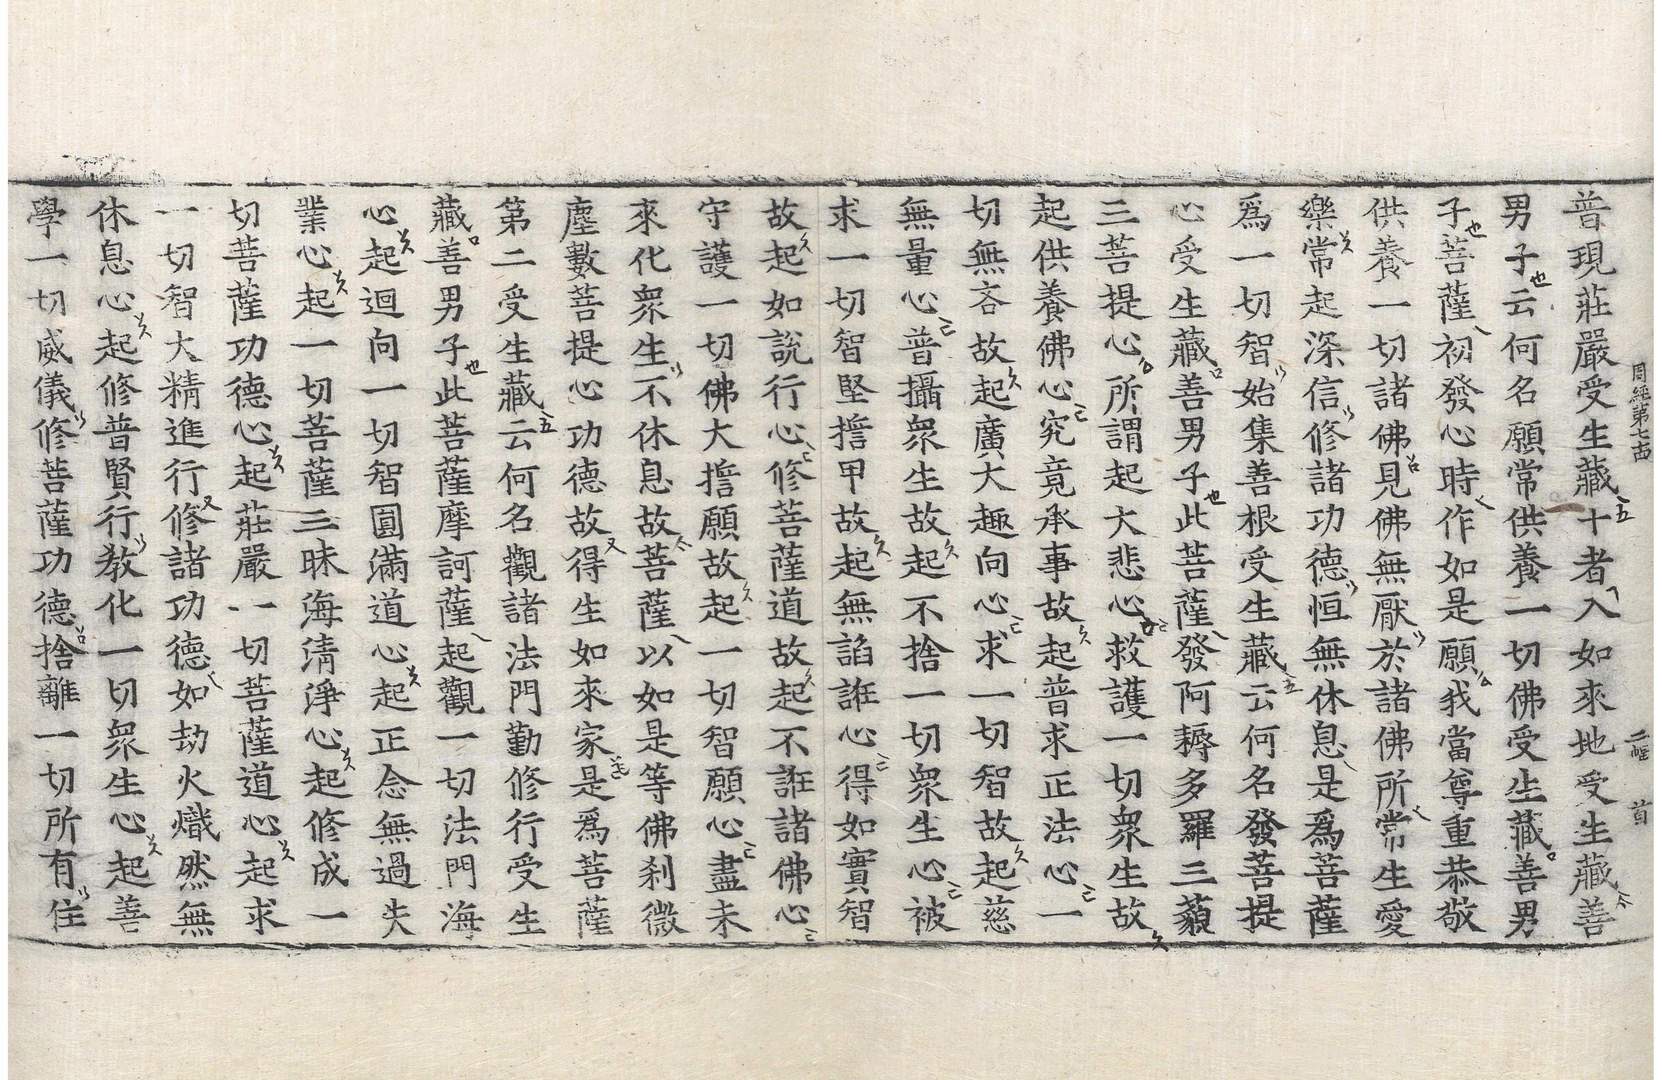 普現莊嚴受生藏十者入如來地受生藏善
周經第七十四 二幅 首
男子云何名願常供養一切佛受生藏善男
子菩薩初發心時作如是願我當尊重恭敬
供養一切諸佛見佛無厭於諸佛所常生愛
樂常起深信修諸功德恒無休息是爲菩薩
爲一切智始集善根受生藏云何名發菩提
心受生藏善男子此菩薩發阿耨多羅三藐
三菩提心所謂起大悲心救護一切衆生故
起供養佛心究竟承事故起普求正法心一
切無吝故起廣大趣向心求一切智故起慈
無量心普攝衆生故起不捨一切衆生心被
求一切智堅誓甲故起無諂誑心得如實智
故起如說行心修菩薩道故起不誑諸佛心
守護一切佛大誓願故起一切智願心盡未
來化衆生不休息故菩薩以如是等佛刹微
塵數菩提心功德故得生如來家是爲菩薩
第二受生藏云何名觀諸法門勤修行受生
藏善男子此菩薩摩訶薩起觀一切法門海
心起迴向一切智圓滿道心起正念無過失
業心起一切菩薩三昧海清淨心起修成一
切菩薩功德心起莊嚴一切菩薩道心起求
一切智大精進行修諸功德如劫火熾然無
休息心起修普賢行教化一切衆生心起善
學一切威儀修菩薩功德捨離一切所有住